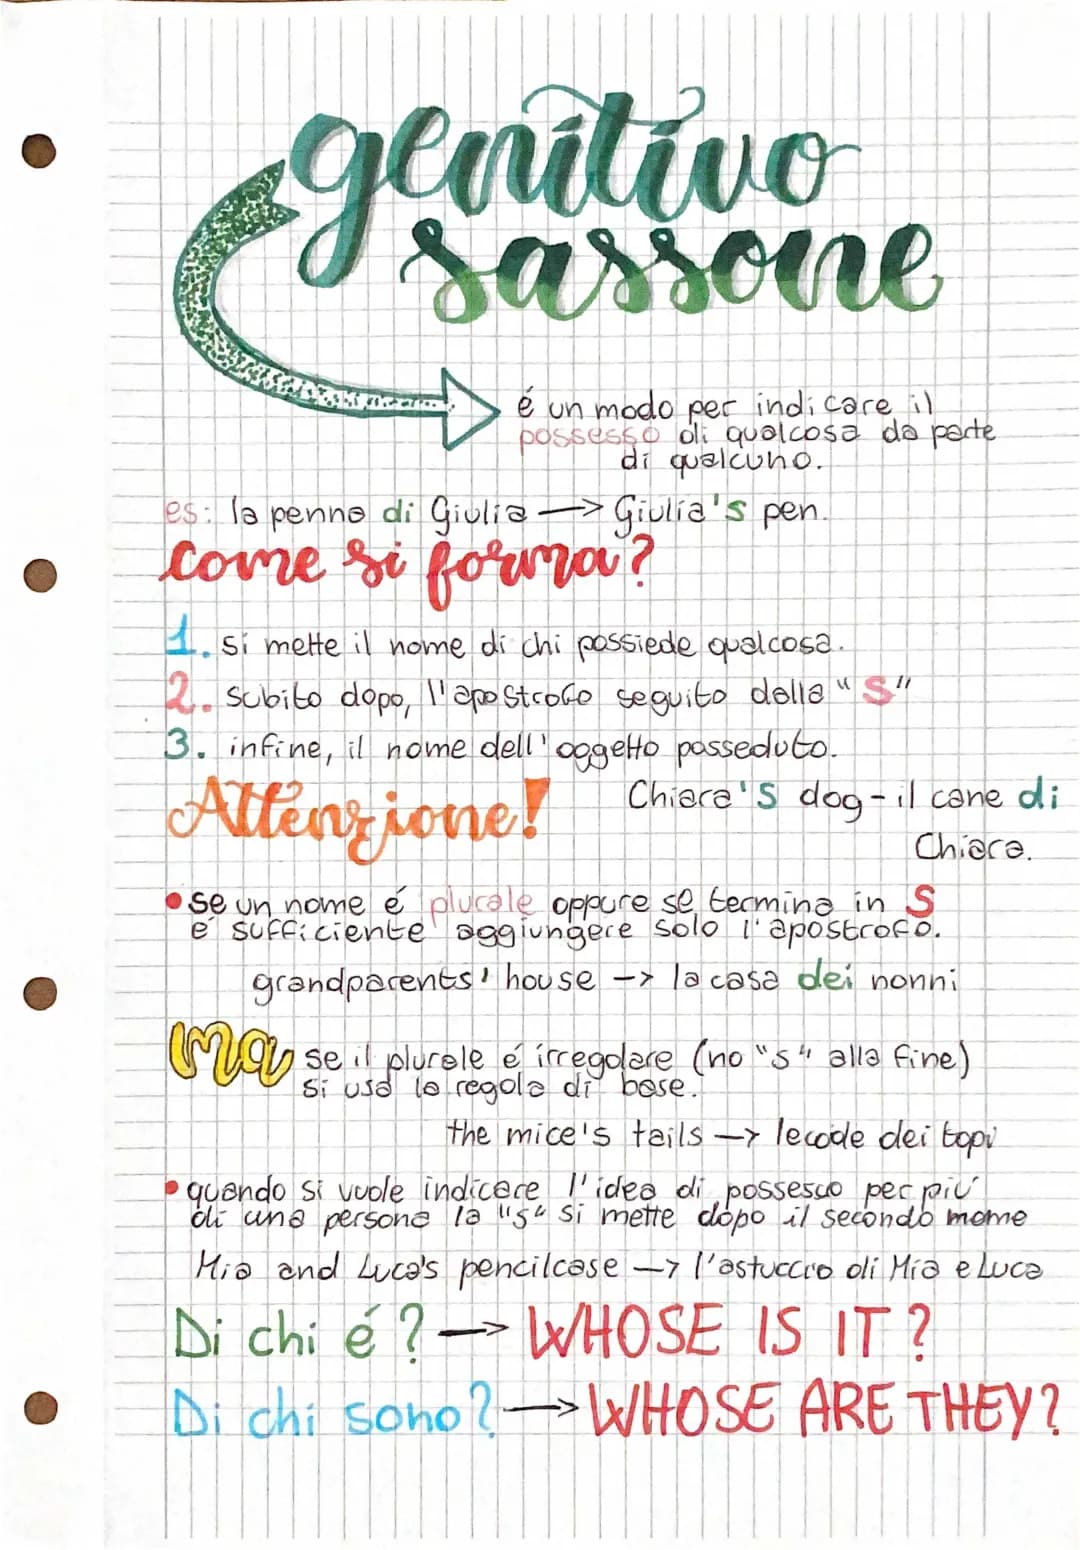 genitivo
sassone
é un modo per indicare il
possesso di qualcosa da parte
di qualcuno.
es: la penna di Giulia —> Giulia's pen.
come si forma?
1. si mette il nome di chi possiede qualcosa.
2. subito dopo, l'apostrofo seguito dalla "S"
3. infine, il nome dell'oggetto posseduto.
Attenzione!
Chiara's dog - il cane di
Chiara.
• se un nome é plurale oppure se termina in S
e' sufficiente aggiungere solo l'apostrofo.
grandparents' house -> la casa dei nonni
ma se il plurale é irregolare (no "s" alla fine)
si usa la regola di base.
the mice's tails —> le code dei topi
• quando si vuole indicare l'idea di possesso per piu'
di una persona la "s" si mette dopo il secondo mome
Mia and Luca's pencilcase —> l'astuccio di Mia e Luca
Di chi é? —> WHOSE IS IT?
Di chi sono? —> WHOSE ARE THEY?